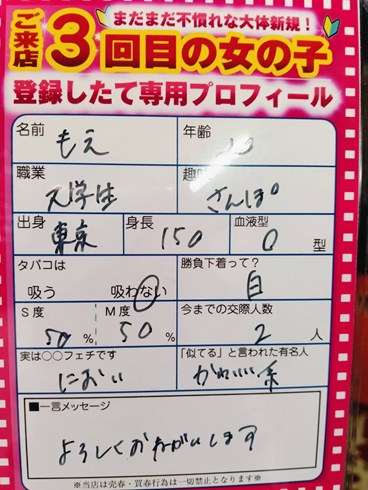 まだまだ不慣れな大体新規！
ご来店3回目の女の子
登録したて専用プロフィール
名前 もえ 年齢
職業 大学生 趣味 さんぽ
出身 東京 身長 150 血液型 O 型
タバコは 勝負下着って？
吸う 吸わない 白
S度 M度 今までの交際人数
50% 50% 2人
実は○○フェチです 「似てる」と言われた有名人
におい かわいい系
■一言メッセージ
よろしくおねがいします
※当店は売春・買春行為は一切禁止となります※